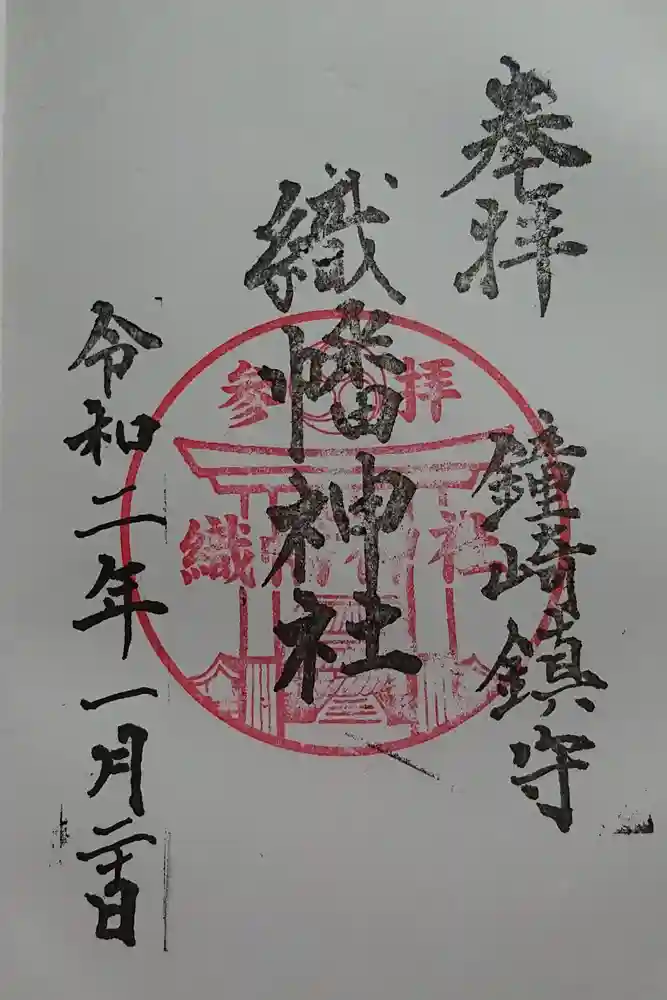 奉拝
鐘崎鎮守
織幡神社
令和二年一月二十日
参拝
織幡神社